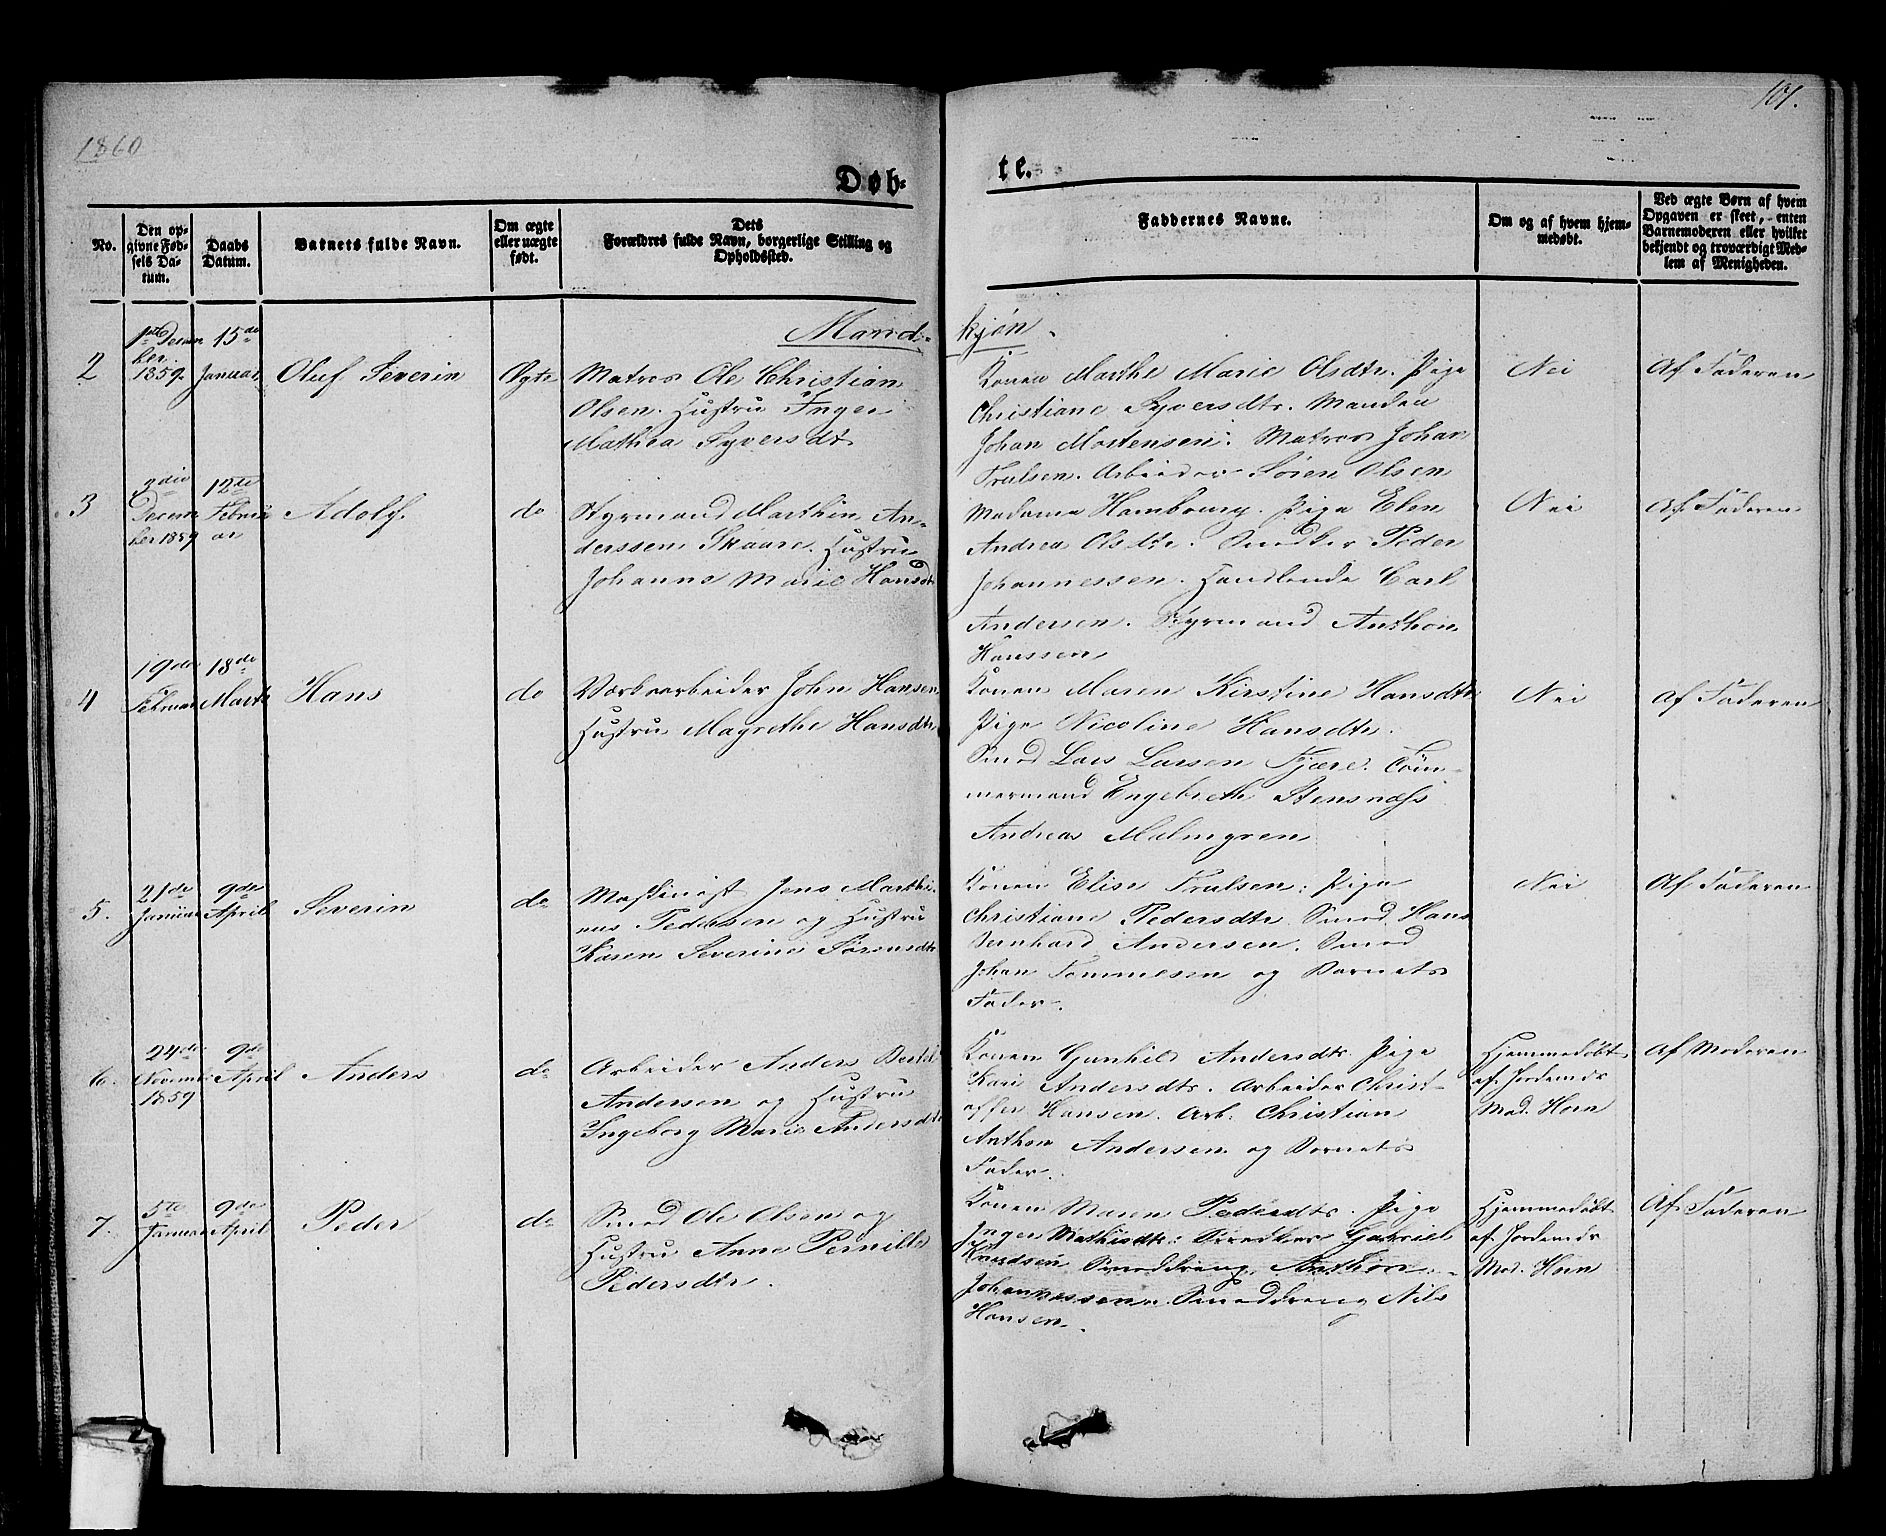 1860
101.
Døb-
te.
No.
Den op-
givne Fød-
sels Da-
tum.
Daabs
Datum.
Barnets fulde Navn.
Om ægte
eller uægte
født.
Dets
Forældres fulde Navn, borgerlige Stilling og
Opholdssted.
Faddernes Navne.
Om og af hvem hjem-
medøbt.
Ved ægte Børn af hvem
Opgaven er skeet, enten
Barnemoderen eller hvilket
bekjendt og troværdigt Med-
lem af Menigheden.
Mand-
kjøn.
2
1ste Decem
ber
1859.
15de
Januar
Oluf Severin
Ægte
Matros Ole Christian
Olsen. Hustru Inger
Mathea Syversdtr
Konen Marthe Marie Olsdtr. Pige
Christiane Syversdtr. Manden
Johan Mortensen. Matros Johan
Trulsen. Arbeider Søren Olsen
Nei
Af Faderen
3
3die
Decem
ber 1859
12te
Febru
ar
Adolf.
do
Styrmand Marthin An-
derssen Skaare. Hustru
Johanne Marie Hansdtr
Madame Hambourg. Pige Elen
Andrea Olsdtr. Snedker Peder
Johannessen. Handlende Carl
Andersen. Styrmand Anthon
Hanssen
Nei
Af Faderen
4
19de
Februar
18de
Marts
Hans
do
Værksarbeider John Hansen
Hustru Magrethe Hansdtr
Konen Maren Kirstine Hansdtr
Pige Nicoline Hansdtr.
Smed Lars Larsen Fjære. Tøm-
mermand Engebreth Stensnæss
Andreas Malmgren
Nei
Af Faderen
5.
21de
Januar
9de
April
Severin
do
Maskinist Jens Marthi-
nus Pedersen og Hustru
Karen Severine Sørensdtr
Konen Elise Trulsen: Pige
Christiane Pedersdtr. Smed Hans
Bernhard Andersen. Smed
Johan Tommesen og Barnets
Fader.
Nei
Af Faderen
6.
24de
Novemb
1859
9de
April
Anders
do
Arbeider Anders Bertel
Andersen og Hustru
Ingeborg Marie Andersdtr
Konen Gunhild Andersdtr. Pige
Kari Andersdtr. Arbeider Christ-
offer Hansen. Arb. Christian
Anthon Andersen og Barnets
Fader.
Hjemmedøbt
af Jordemdr
Mad. Horn
Af Moderen
7.
5te
Januar
9de
April
Peder
do
Smed Ole Olsen og
Hustru Anne Pernille
Pedersdtr.
Konen Maren Pedersdtr. Pige
Inger Mathisdtr: Snedker Gabriel
Knudsen Smeddreng Anthon
Johannessen. Smeddreng Nils
Hansen.
Hjemmedøbt
af Jordemdr
Mad. Horn
Af Faderen